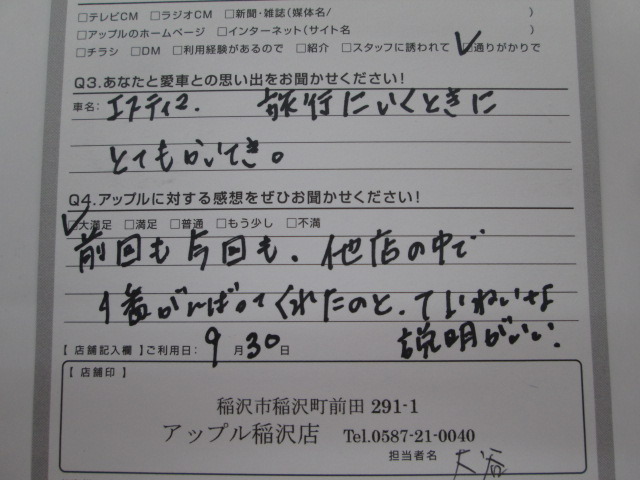 □テレビCM □ラジオCM □新聞・雑誌(媒体名/ )
□アップルのホームページ □インターネット(サイト名 )
□チラシ □DM □利用経験があるので □紹介 □スタッフに誘われて ✓通りがかりで
Q3.あなたと愛車との思い出をお聞かせください!
車名: エスティマ. 旅行にいくときに
とてもかいてき。
Q4.アップルに対する感想をぜひお聞かせください!
✓大満足 □満足 □普通 □もう少し □不満
前回も今回も、他店の中で
1番がんばってくれたのと、ていねいな
説明がいい.
【 店舗記入欄 】ご利用日: 9月30日
【 店舗印 】
稲沢市稲沢町前田 291-1
アップル稲沢店 Tel.0587-21-0040
担当者名 大谷